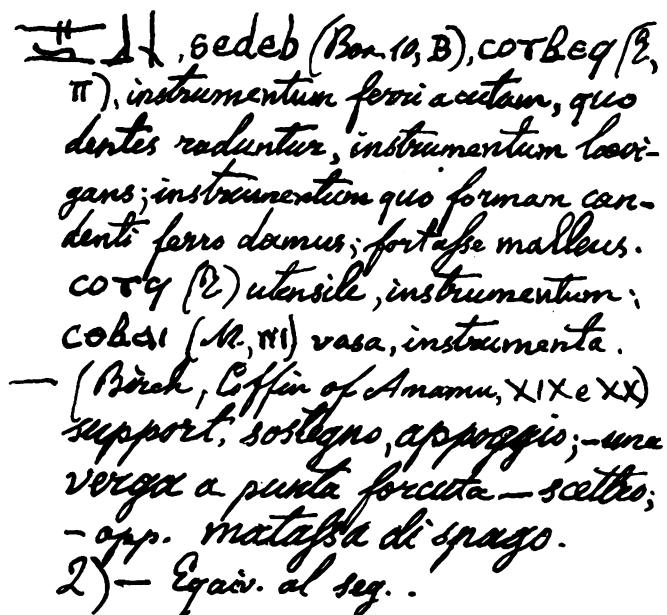 , sedeb (Bon. 10, B), ⲥⲟⲧⲃⲉϥ (
π), instrumentum ferri acutam, quo
dentes raduntur, instrumentum laevi-
gans; instrumentum quo formam can-
denti ferro damus; fortasse malleus.
ⲥⲟⲧϥ ( ) utensile, instrumentum;
(M, ) vasa, instrumenta.
— (Birch, Coffin of Anamu, XIX e XX)
support, sostegno, appoggio; – una
verga a punta forcuta — scettro;
– opp. matassa di spago.
2) — Equiv. al seg. .